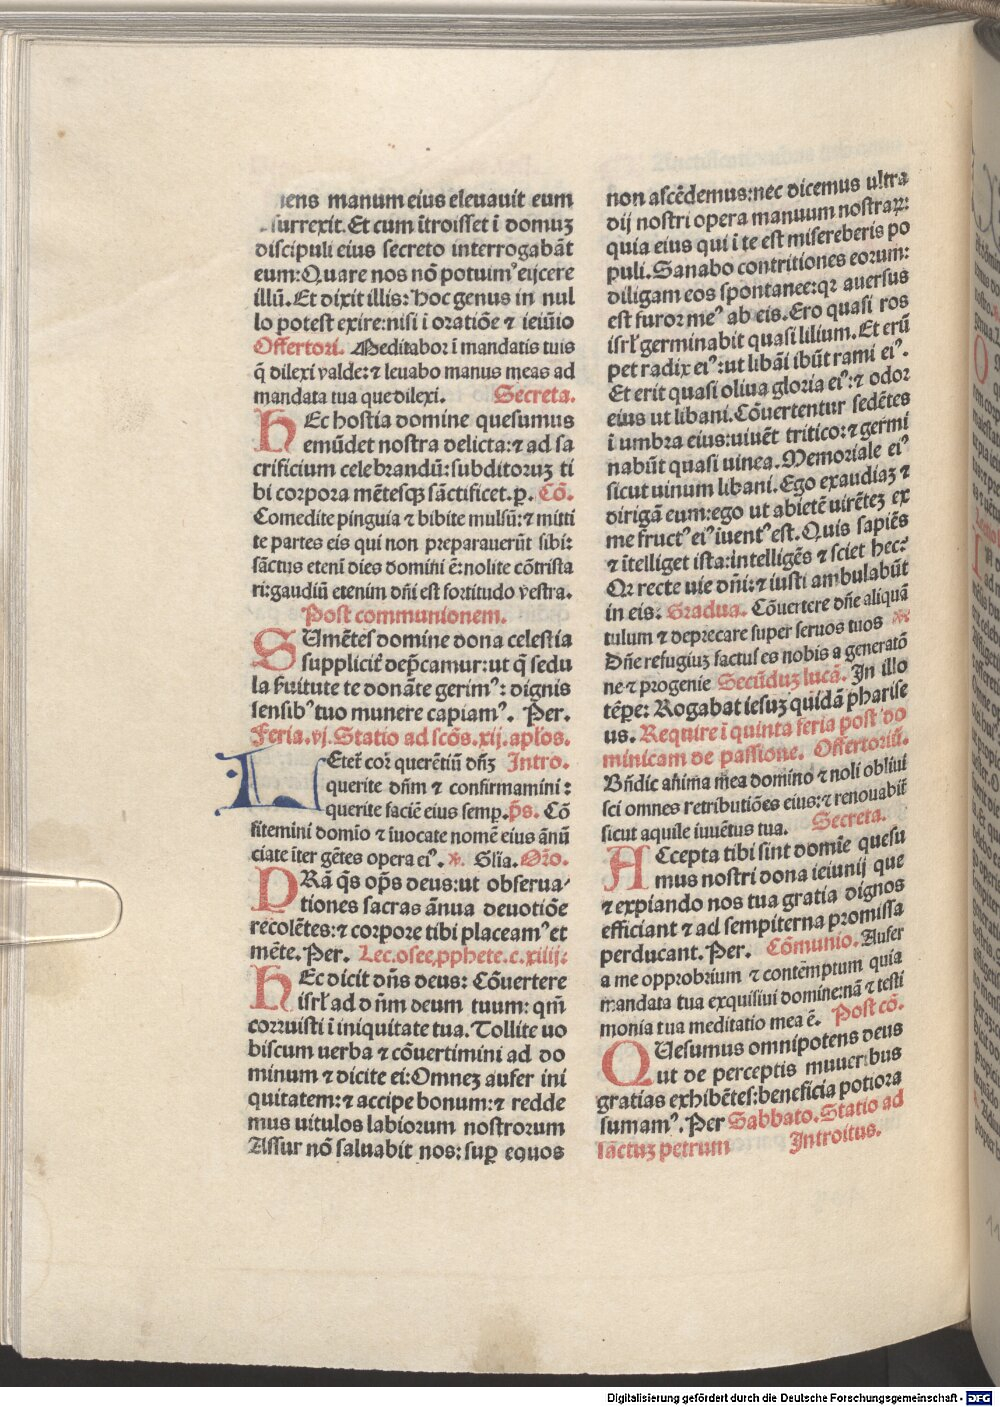 nens manum eius eleuauit eum
surrexit. Et cum ĩtroisset ĩ domuꝫ
discipuli eius secreto interrogabãt
eum: Quare nos nõ potuimꝰ eijcere
illũ. Et dixit illis: hoc genus in nul
lo potest exire: nisi ĩ oratiõe ⁊ ieiũio
Offertori. Meditabor ĩ mandatis tuis
q̃ dilexi valde: ⁊ leuabo manus meas ad
mandata tua que dilexi. Secreta.
HEc hostia domine quesumus
emũdet nostra delicta: ⁊ ad sa
crificium celebrandũ: subditoruꝫ ti
bi corpora mẽtesqꝫ sãctificet. p. Cõ.
Comedite pinguia ⁊ bibite mulsũ: ⁊ mitti
te partes eis qui non preparauerũt sibi:
sãctus etenĩ dies domini ẽ: nolite cõtrista
ri: gaudiũ etenim dñi est fortitudo vestra.
Post communionem.
SUmẽtes domine dona celestia
suppliciť dep̃camur: ut q̃ sedu
la ẜuitute te donãte gerimꝰ: dignis
sensibꝰ tuo munere capiamꝰ. Per.
Feria. vj. Statio ad scõs. xij. apłos.
LEteť coꝛ querẽtiũ dñꝫ Intro.
querite dñm ⁊ confirmamini:
querite faciẽ eius semꝑ. p̃s. Cõ
fitemini domĩo ⁊ ĩuocate nomẽ eius ãnũ
ciate ĩter gẽtes opera eiꝰ. ꝟ. Glĩa. Oro.
PRã q̃s op̃s deus: ut obserua
tiones sacras ãnua deuotiõe
recolẽtes: ⁊ corpore tibi placeamꝰ et
mẽte. Per. Lec. osee ꝓphete. c. xiiij:
HEc dicit dñs deus: Cõuertere
isrł ad dñm deum tuum: qm̃
corruisti ĩ iniquitate tua. Tollite uo
biscum uerba ⁊ cõuertimini ad do
minum ⁊ dicite ei: Omneꝫ aufer ini
quitatem: ⁊ accipe bonum: ⁊ redde
mus uitulos labiorum nostrorum
Assur nõ saluabit nos: suꝑ equos
non ascẽdemus: nec dicemus ultra
dij nostri opera manuum nostraꝝ:
quia eius qui ĩ te est misereberis po
puli. Sanabo contritiones eorum:
diligam eos spontanee: qꝛ auersus
est furor meꝰ ab eis. Ero quasi ros
isrł germinabit quasi lilium. Et erũ
pet radix eiꝰ: ut libãi ibũt rami eiꝰ.
Et erit quasi oliua gloria eiꝰ: ⁊ odor
eius ut libani. Cõuertentur sedẽtes
ĩ umbra eius: uiuẽt tritico: ⁊ germi
nabũt quasi uinea. Memoriale eiꝰ
sicut uinum libani. Ego exaudiaꝫ ⁊
dirigã eum: ego ut abietẽ uirẽteꝫ ex
me fructꝰ eiꝰ ĩuentꝰ est. Quis sapiẽs
⁊ ĩtelliget ista: intelligẽs ⁊ sciet hec:
Qꝛ recte uie dñi: ⁊ iusti ambulabũt
in eis: Gradua. Cõuertere dñe aliquã
tulum ⁊ deprecare super seruos tuos ꝟ.
Dñe refugiuꝫ factus es nobis a generatõ
ne ⁊ progenie Secũduꝫ lucã. In illo
tẽpe: Rogabat iesuꝫ quidã pharise
us. Require ĩ quinta feria post do
minicam de passione. Offertoriũ.
Bñdic aĩma mea domino ⁊ noli obliui
sci omnes retributiões eius: ⁊ renouabiť
sicut aquile iuuẽtus tua. Secreta.
ACcepta tibi sint domĩe quesu
mus nostri dona ieiunij que
⁊ expiando nos tua gratia dignos
efficiant ⁊ ad sempiterna promissa
perducant. Per. Cõmunio. Aufer
a me opprobrium ⁊ contẽmptum quia
mandata tua exquisiui domine: nã ⁊ testi
monia tua meditatio mea ẽ. Post cõ.
QUesumus omnipotens deus
ut de perceptis muneribus
gratias exhibẽtes: beneficia potiora
sumamꝰ. Per Sabbato. Statio ad
sãctuꝫ petrum Introitus.
Digitalisierung gefördert durch die Deutsche Forschungsgemeinschaft - DFG